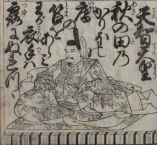 天智天皇
秋の田乃
かりほの
庵の
苫を
あらみ
わが
衣手は
露にぬれつゝ